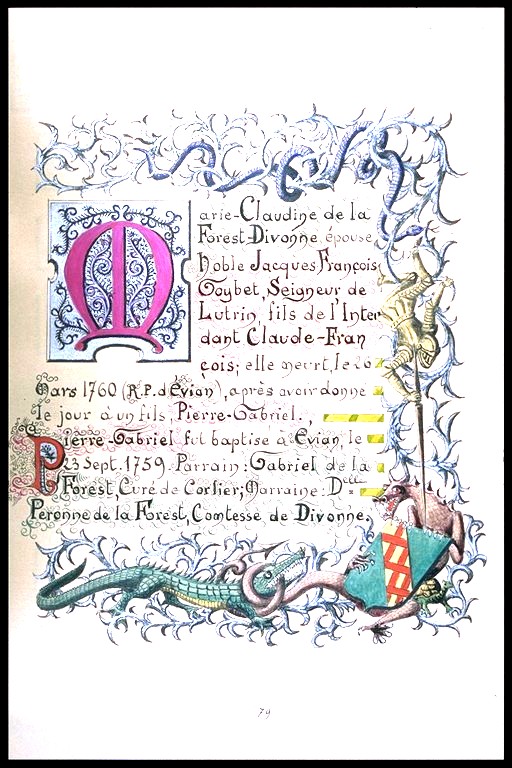 Marie-Claudine de la
Forest-Divonne, épouse
Noble Jacques François
Goybet, Seigneur de
Lutrin, fils de l'Inten
dant Claude-Fran
çois; elle meurt, le 26
Mars 1760 (R.P. d'Évian), après avoir donné
le jour à un fils, Pierre-Gabriel.
Pierre-Gabriel fut baptisé à Évian, le
23 Sept. 1759. Parrain: Gabriel de la
Forest, Curé de Corsier; Marraine: Delle
Peronne de la Forest, Comtesse de Divonne.
79